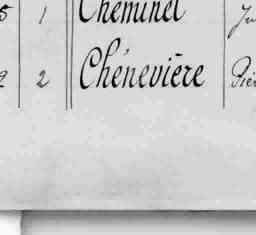 5 1 Cheminel Ju
2 2 Chénevière Pier